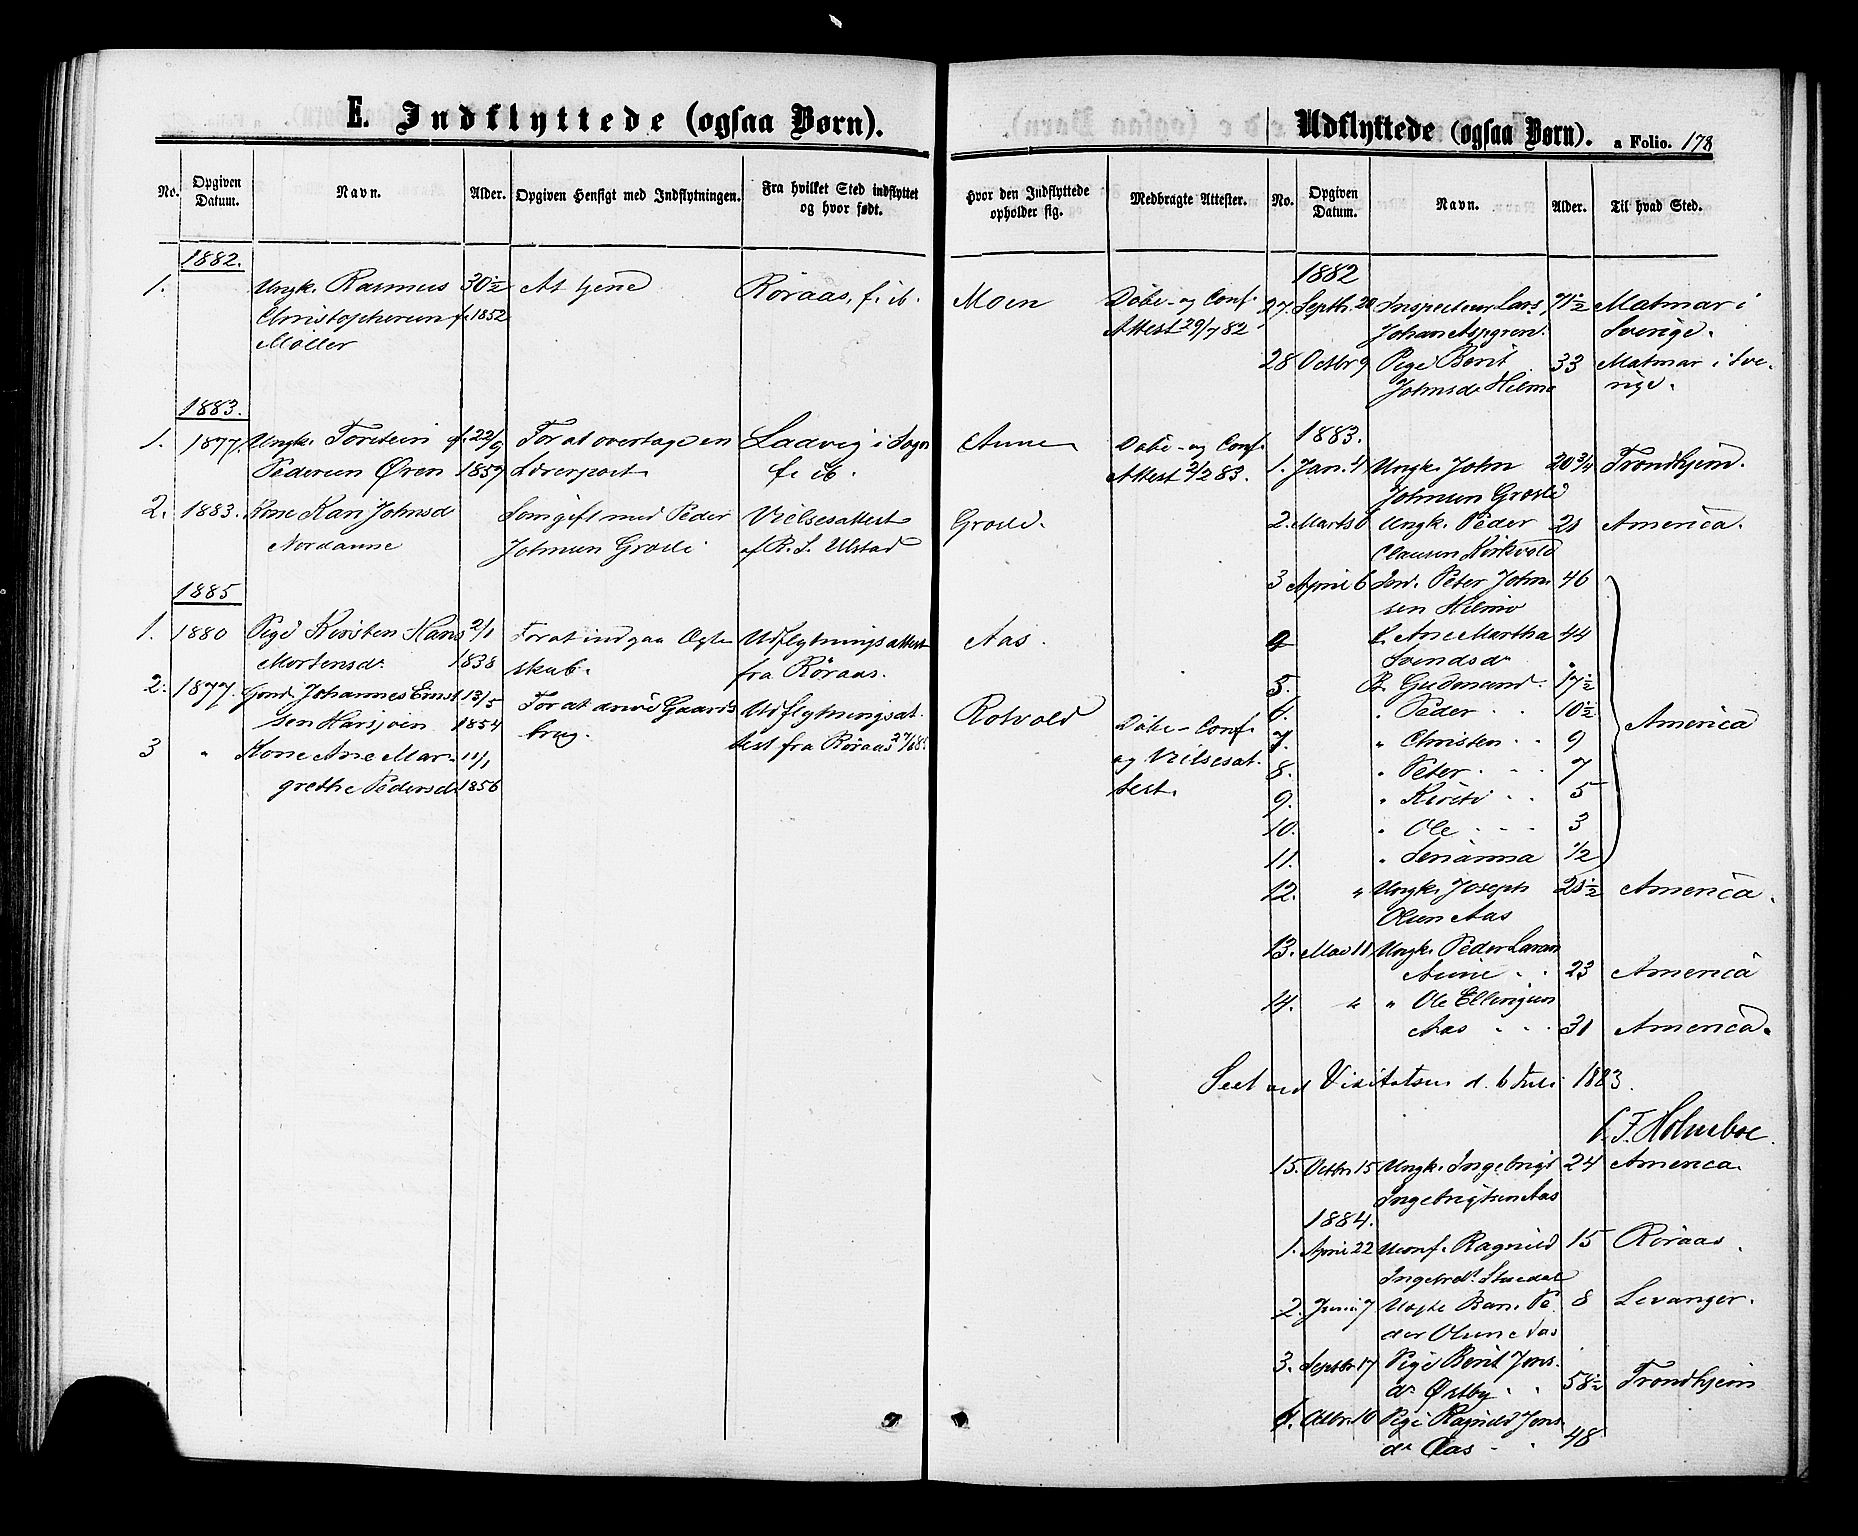 E. Indflyttede (ogsaa Børn).
No. Opgiven Datum. Navn. Alder. Opgiven Hensigt med Indflytningen. Fra hvilket Sted indflyttet og hvor født.
1882.
1. Ungk. Rasmus 30 1/2 At tjene Røraas, f. ib.
Christophersen f. 1852
Møller
1883.
1. 1877. Ungk. Torstein f. 22/9 For at overtage en Ladvig i Sogn
Pedersen Øren 1857 Lærerpost f. ib.
2. 1883. Kone Kari Johnsd Som gift med Peder Vielsesattest
Nordaune Johnsen Græsli af R. S. Ulstad
1885
1. 1880 Pige Kirsten Hans 2/1 For at indgaa Ægte Udflytningsattest
Mortensdr 1838 skab. fra Røraas.
2. 1877. Gmd. Johannes Ernst 13/5 For at drive Gaards Udflytningsat-
sen Harsjøen 1854 brug. test fra Røraas
3 " Kone Ane Mar- 11/1
grethe Pedersd. 1856
Udflyttede (ogsaa Børn). a Folio. 178
Hvor den Indflyttede opholder sig. Medbragte Attester. No. Opgiven Datum. Navn. Alder. Til hvad Sted.
Moen Døbe- og Conf.
Attest 29/7 82
Aune Døbe- og Conf.
Attest 2/2 83.
Græsli.
Aas.
Rotvold Døbe- Conf.
og Vielsesat-
test.
1882
27. Septbr. 20 Inspecteur Lars 71 1/2 Matmar i
Johan Aspgren. Sverige.
28 Octbr 9 Pige Berit 33 Matmar i Sve-
Johnsdr Hilmo rige.
1883.
1. Jan. 4 Ungk. John 20 3/4 Trondhjem.
Johnsen Græsli
2. Marts 6 Ungk. Peder 21 America.
Clausen Kirkvold
3 April 6 Ind. Peter John- 46
sen Hilmo
4 K. Ane Martha 44
Svendsdr
5. B. Gudmund. 17 1/2
6. " Peder 10 1/2 America
7. " Christen 9
8. " Peter 7
9. " Kirsti 5
10. " Ole 3
11. " Serianna 1/2
12. " Ungk. Joseph 21 1/2 America.
Olsen Aas
13. Mai 11 Ungk. Peder Larsen
Aune 23 America
14. " " Ole Ellingsen
Aas 31 America.
Seet ved Visitatsen d. 6 Juli 1883.
C. F. Holmboe.
15. Octbr 15 Ungk. Ingebrigt 24 America.
Ingebrigtsen Aas
1884.
1. April 22 Uconf. Ragnild 15 Røraas.
Ingebrdr Stuedal
2. Juni 7 Uægte Barn Pe- 8 Levanger.
der Olsen Aas
3. Septbr 17 Pige Berit Jons-
dr Østby 58 1/2 Trondhjem
4. Octbr. 10 Pige Ragnild Jons-
dr Aas 48